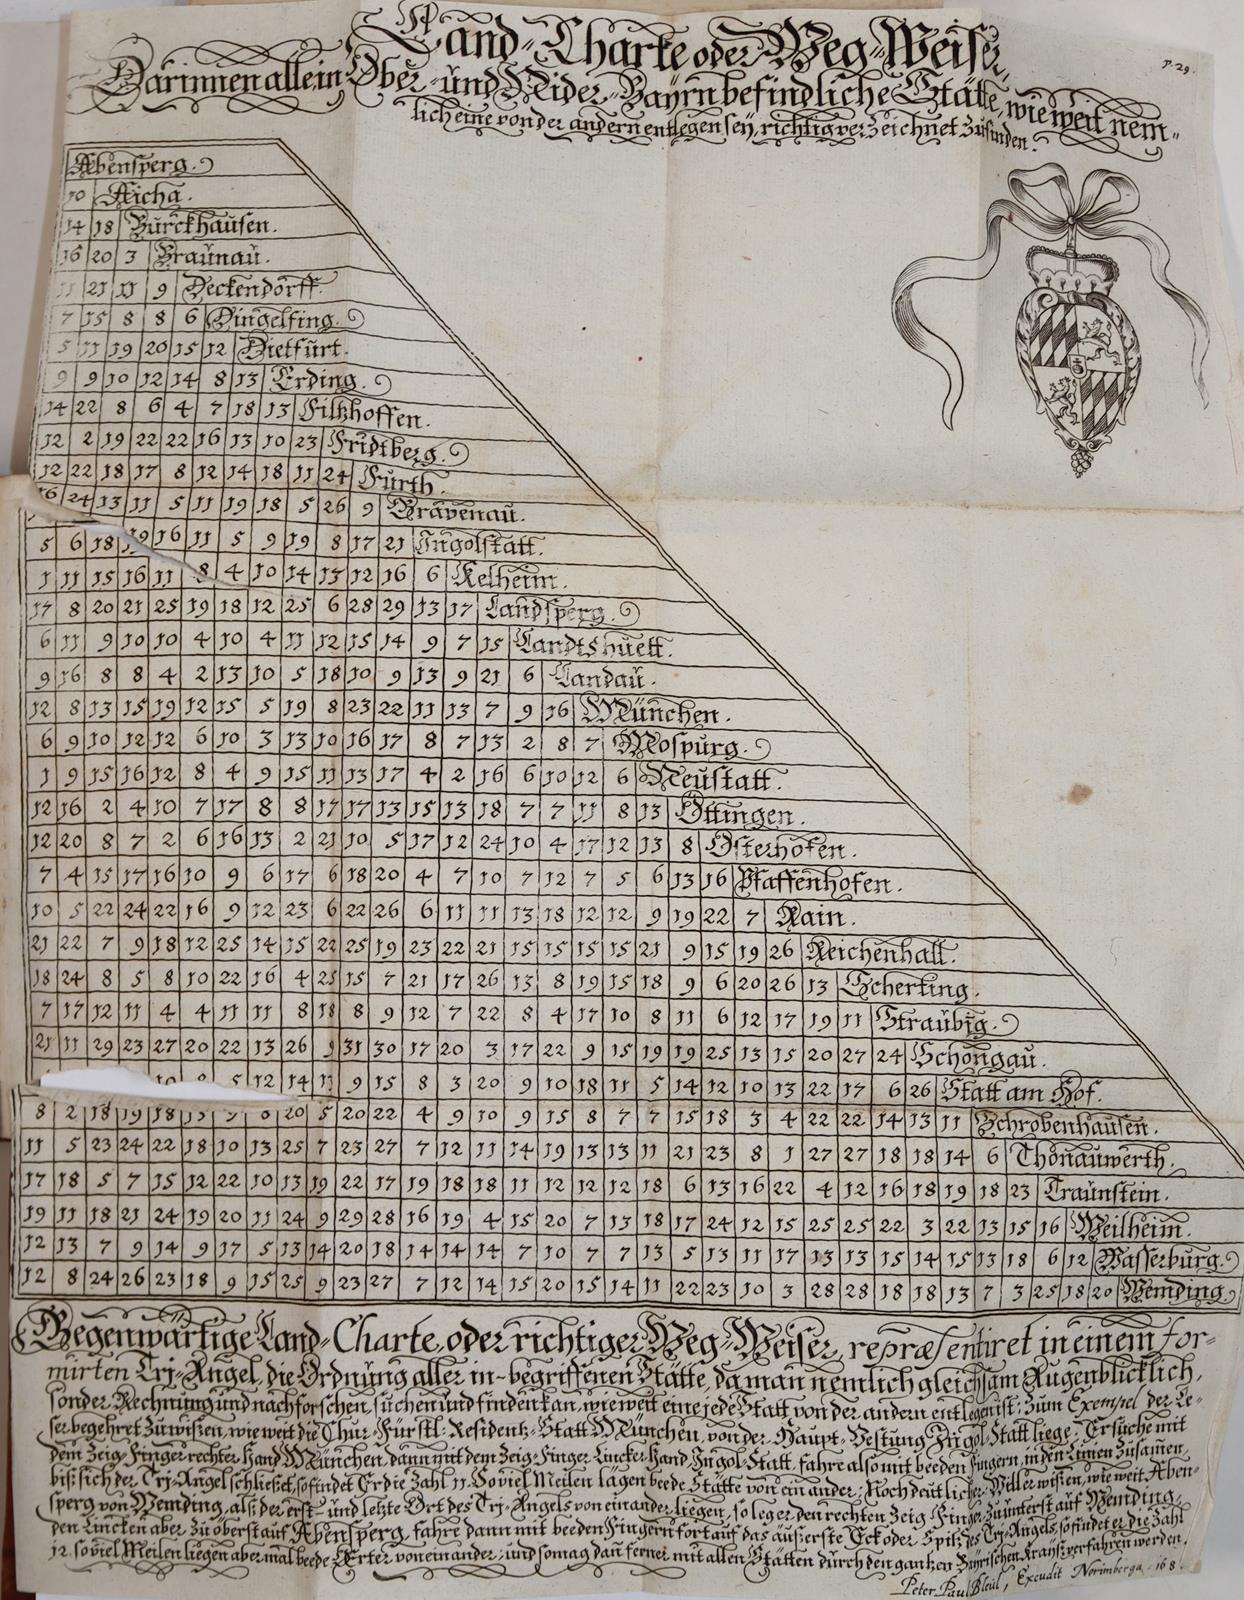 Land-Charte oder Weg-Weiser,
Darinnen alle in Ober- und Nider-Bayrn befindliche Stätte, wie weit nem-
lich eine von der andern entlegen seÿ, richtig verzeichnet zufinden.
P. 29.
Abensperg.
10 Aicha.
14 18 Burckhausen.
16 20 3 Braunau.
11 21 11 9 Deckendorff.
7 15 8 8 6 Dingelfing.
5 11 19 20 15 12 Dietfurt.
9 9 10 12 14 8 13 Erding.
14 22 8 6 4 7 18 13 Filtzhoffen.
12 2 19 22 22 16 13 10 23 Fridtberg.
12 22 18 17 8 12 14 18 11 24 Furth.
16 24 13 11 5 11 19 18 5 26 9 Gravenau.
5 6 18 19 16 11 5 9 19 8 17 21 Ingolstatt.
1 11 15 16 11 8 4 10 14 13 12 16 6 Kelheim.
17 8 20 21 25 19 18 12 25 6 28 29 13 17 Landsperg.
6 11 9 10 10 4 10 4 11 12 15 14 9 7 15 Landtshuett.
9 16 8 8 4 2 13 10 5 18 10 9 13 9 21 6 Landau.
12 8 13 15 19 12 15 5 19 8 23 22 11 13 7 9 16 München.
6 9 10 12 12 6 10 3 13 10 16 17 8 7 13 2 8 7 Mospurg.
1 9 15 16 12 8 4 9 15 11 13 17 4 2 16 6 10 12 6 Neustatt.
12 16 2 4 10 7 17 8 8 17 17 13 15 13 18 7 7 11 8 13 Öttingen.
12 20 8 7 2 6 16 13 2 21 10 5 17 12 24 10 4 17 12 13 8 Osterhofen.
7 4 15 17 16 10 9 6 17 6 18 20 4 7 10 7 12 7 5 6 13 16 Pfaffenhofen.
10 5 22 24 22 16 9 12 23 6 22 26 6 11 11 13 18 12 12 9 19 22 7 Rain.
21 22 7 9 18 12 25 14 15 22 25 19 23 22 21 15 15 15 15 21 9 15 19 26 Reichenhall.
18 24 8 5 8 10 22 16 4 25 15 7 21 17 26 13 8 19 15 18 9 6 20 26 13 Scherting.
7 17 12 11 4 4 11 11 8 18 8 9 12 7 22 8 4 17 10 8 11 6 12 17 19 11 Straubig.
21 11 29 23 27 20 22 13 26 9 31 30 17 20 3 17 22 9 15 19 19 25 13 15 20 27 24 Schongau.
10 8 5 12 14 11 9 15 8 3 20 9 10 18 11 5 14 12 10 13 22 17 6 26 Statt am Hof.
8 2 18 19 18 20 5 20 22 4 9 10 9 15 8 7 7 15 18 3 4 22 22 14 13 11 Schrobenhausen.
11 5 23 24 22 18 10 13 25 7 23 27 7 12 11 14 19 13 13 11 21 23 8 1 27 27 18 18 14 6 Thonauwerth.
17 18 5 7 15 12 22 10 13 19 22 17 19 18 18 11 12 12 12 18 6 13 16 22 4 12 16 18 19 18 23 Traunstein.
19 11 18 21 24 19 20 11 24 9 29 28 16 19 4 15 20 7 13 18 17 24 12 15 25 25 22 3 22 13 15 16 Weilheim.
12 13 7 9 14 9 17 5 13 14 20 18 14 14 14 7 10 7 7 13 5 13 11 17 13 13 15 14 15 13 18 6 12 Wasserburg.
12 8 24 26 23 18 9 15 25 9 23 27 7 12 14 15 20 15 14 11 22 23 10 3 28 28 18 18 13 7 3 25 18 20 Wemding.
Gegenwärtige Land-Charte, oder richtiger Weg-Weiser, repræsentiret in einem for-
mirten Trj-Angel, die Ordnung aller in-begriffenen Stätte, da man nemlich gleichsam Augenblicklich,
sonder Rechnung und nachforschen, suchen und finden kan, wie weit eine jede Statt von der andern entlegen ist: zum Exempel der Le-
ser begehret zu wissen, wie weit die Chur-Fürstl: Residentz-Statt München, von der Haupt-Vestung Ingol-Statt liege: Er suche mit
dem Zeig-Finger rechter Hand München, dann mit dem Zeig-Finger Lincker Hand, Ingol-Statt, fahre also mit beeden Fingern, in den Linien zusamen,
biß sich der Trj-Angel schließet, so findet Er die Zahl 11. So viel Meilen lägen beede Stätte von ein ander: Noch deutlicher: Will er wißen, wie weit Aben-
sperg von Wemding, als der erst- und letzte Ort des Trj-Angels von einander liegen, so leg er den rechten Zeig-Finger zu unterst auf Wemding,
den Lincken aber zu öberst auf Abensperg, fahre dann mit beeden Fingern fort auf das äußerste Eck oder Spitz des Trj-Angels, so findet er die Zahl
12. so viel Meilen liegen abermal beede Örter von einander: und so mag dan ferner mit allen Stätten durch den gantzen Bäyrischen Kräyß verfahren werden.
Peter Paul Bleul, Excudit Norimberga. 168